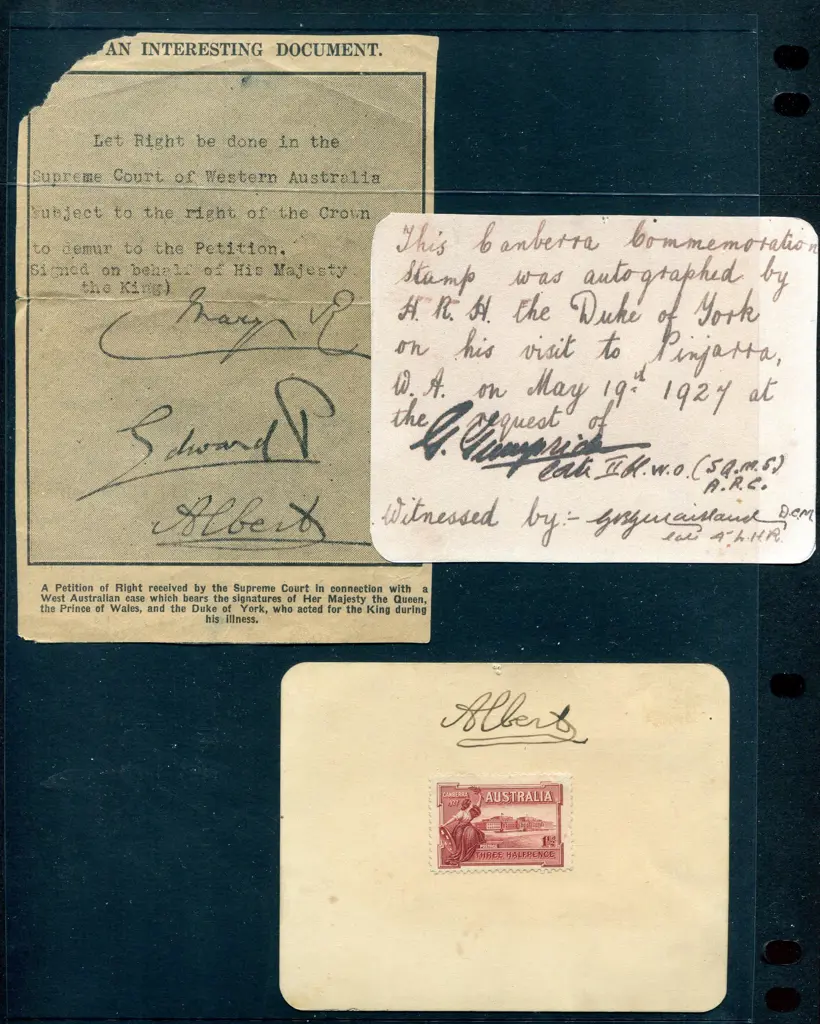 AN INTERESTING DOCUMENT.
Let Right be done in the
Supreme Court of Western Australia
subject to the right of the Crown
to demur to the Petition.
Signed on behalf of His Majesty
the King)
Mary R
Edward P
Albert
A Petition of Right received by the Supreme Court in connection with a
West Australian case which bears the signatures of Her Majesty the Queen,
the Prince of Wales, and the Duke of York, who acted for the King during
his illness.
This Canberra Commemoration
Stamp was autographed by
H. R. H. the Duke of York
on his visit to Pinjarra,
W. A. on May 19th 1927 at
the request of
G.
late II K.W.O. (S.Q.M.S)
A.P.C.
Witnessed by:- D.C.M
late 4th L.H.R.
Albert
CANBERRA
1927
AUSTRALIA
POSTAGE
1½d
THREE HALFPENCE